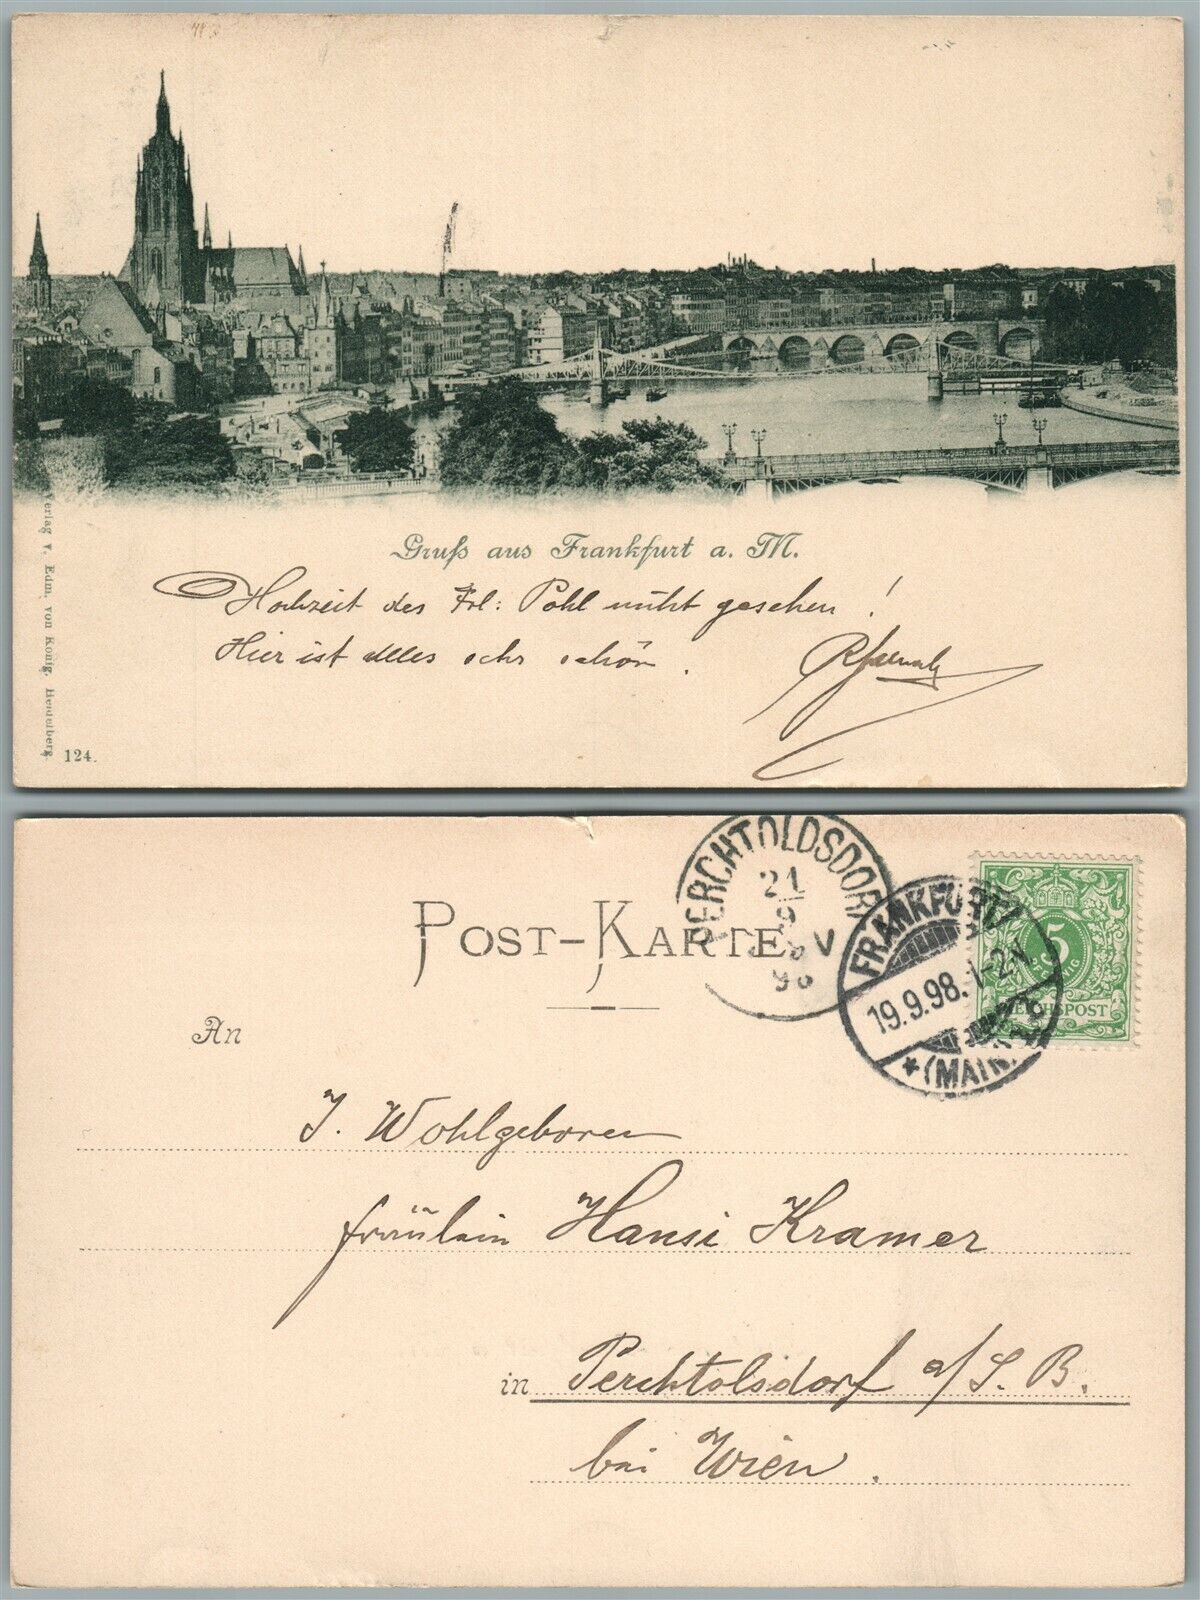 Gruß aus Frankfurt a. M.
Hochzeit des Frl: Pohl nicht gesehen!
Hier ist alles sehr schön.
Verlag v. Edm. von König, Heidelberg.
124.
POST-KARTE
PERCHTOLDSDORF
21
9
98
FRANKFURT
19.9.98. 1-2N.
* (MAIN)
5
PFENNIG
REICHSPOST
An
I. Wohlgeboren
Fräulein Hansi Kramer
in Perchtolsdorf a/S. B.
bei Wien.